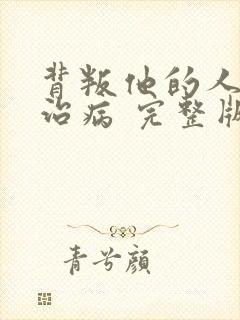 背叛他的人
治病 完整版
青兮颜